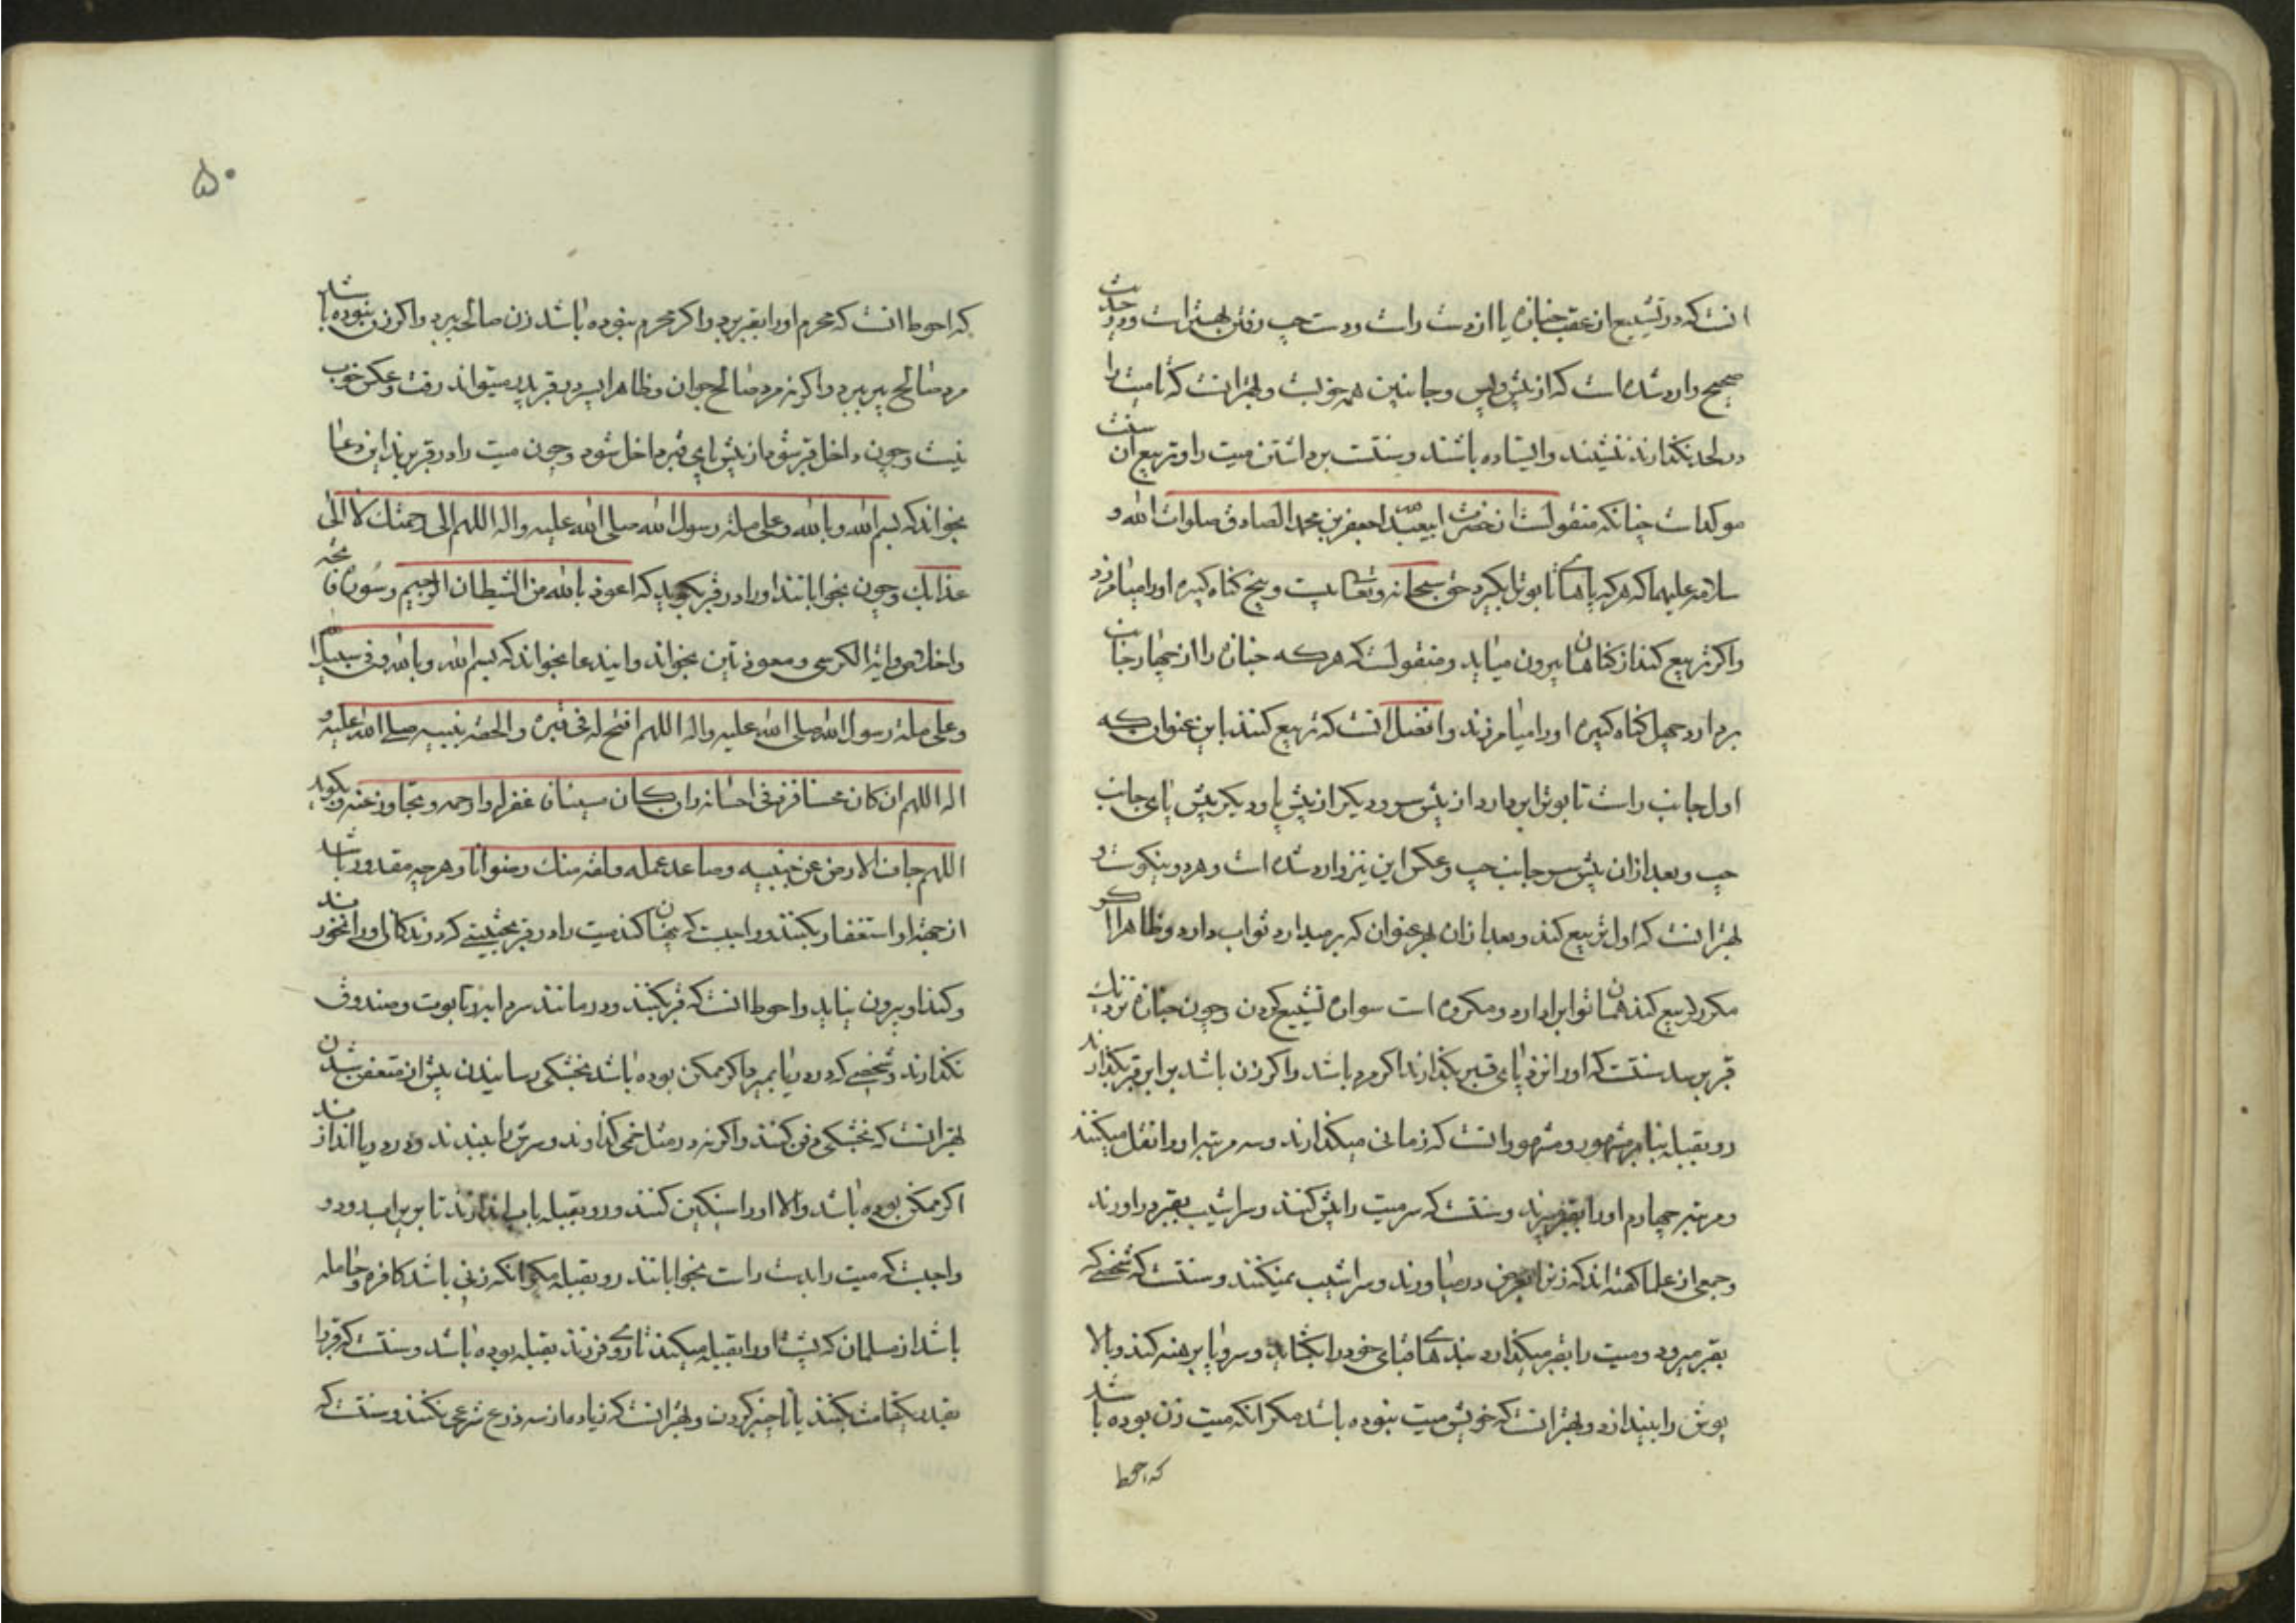 انست که در تشییع از عقب جنازه یا از دست راست و دست چپ رفتن بهتر است و در حدیث
صحیح وارد شده است که از پیش و پس و جانبین همه خوبست و بهتر انست که تا میت را
در لحد نگذارند ننشینند و ایستاده باشند و سنتست برداشتن میت را و تربیع آن سنت
موکد است چنانکه منقولست از حضرت ابی عبد الله جعفر بن محمد الصادق صلوات الله و
سلامه علیهما که هر که پاهای تابوت بگیرد حق سبحانه و تعالی بیست و پنج کناه کبیره او را میامرزد
و اکر تربیع کند از کناهان بیرون میاید و منقولست که هر که جنازه را از چهار جانب
بردارد چهل کناه کبیره او را میامرزند و افضل انست که تربیع کنند باین عنوان که
اول جانب راست تابوت را بردارد از پیش سر و دیکر از پیش پا و دیکر پیش پای جانب
چپ و بعد از ان پیش سر جانب چپ و عکس این نیز وارد شده است و هر دو نیکوست و
بهتر انست که اول تربیع کند و بعد از ان بهر عنوان که برمیدارد ثواب دارد و ظاهرا اکر
مکرر تربیع کند همان ثواب را دارد و مکروه است سواره تشییع کردن و چون جنازه نزدیک
قبر برسد سنتست که او را نزد پای قبر بکذارند اکر مرد باشد و اکر زن باشد برابر قبر بکذارند
رو بقبله بنابر مشهور و مشهور انست که زمانی میکذارند و سه مرتبه او را نقل میکنند
و مرتبه چهارم او را بقبر میبرند و سنتست که سر میت را پیش کنند و سراشیب بقبر در اورند
و جمعی از علما کفته اند که زن را بعرض در میاورند و سراشیب نمیکنند و سنتست که شخصی که
بقبر میرود و میت را بقبر میکذارد بندهای قبای خود را بکشاید و سر و پا برهنه کند و بالا
پوش را بیندازد و بهتر انست که خویش میت نبوده باشد مکر انکه میت زن بوده باشد
که احوط
۵۰
که احوط انست که محرم او را بقبر برد و اکر محرم نبوده باشد زن صالحه برد و اکر زن نبوده باشد
مرد صالح پیر ببرد و اکر نه مرد صالح جوان و ظاهرا پسر در قبر پدر میتواند رفت و عکس خوب
نیست و چون داخل قبر شود از پیش پای قبر داخل شود و چون میت را در قبر برند این دعا
بخواند که بسم الله و بالله و علی ملة رسول الله صلی الله علیه و اله اللهم الی رحمتک لا الی
عذابک و چون بخواباننذ او را در قبر بکوید که اعوذ بالله من الشیطان الرجیم و سوره فاتحه
و اخلاص و ایة الکرسی و معوذتین بخواند و ایندعا بخواند که بسم الله و بالله و فی سبیل الله
و علی ملة رسول الله صلی الله علیه و اله اللهم افسح له فی قبره و الحقه بنبیه صلی الله علیه و
اله اللهم ان کان محسنا فزد فی احسانه و ان کان مسیئا فاغفر له و ارحمه و تجاوز عنه و بکوید
اللهم جاف الارض عن جنبیه و صاعد عمله و لقه منک رضوانا و هر چه مقدور باشد
از جهة او استغفار بکنند و واجبست که پنهان کنند میت را در قبر بحیثیتی که درندکان او را نخورند
و کند او بیرون نیاید و احوط انست که قبر بکنند و در مانند سرداب و تابوت و صندوق
نکذارند و شخصی که در دریا بمیرد اکر ممکن بوده باشد بخشکی رسانیدن پیش از متعفن شدن
بهتر انست که بخشکی دفن کنند و اکر نه در مثل خمی کذارند و سرش را ببندند و در دریا اندازند
اکر ممکن بوده باشد و الا او را سنکین کنند و رو بقبله باب اندازند تا بزیر اب رود و
واجبست که میت را بدست راست بخواباننذ رو بقبله مکر انکه زنی باشد کافره و حامله
باشد از مسلمان که پشت او را بقبله میکنند تا روی فرزند بقبله بوده باشد و سنتست که قبر را
بقدر یکقامت بکنند یا تا چنبر کردن و بهتر انست که زیاده از سه ذرع شرعی نکنند و سنتست که